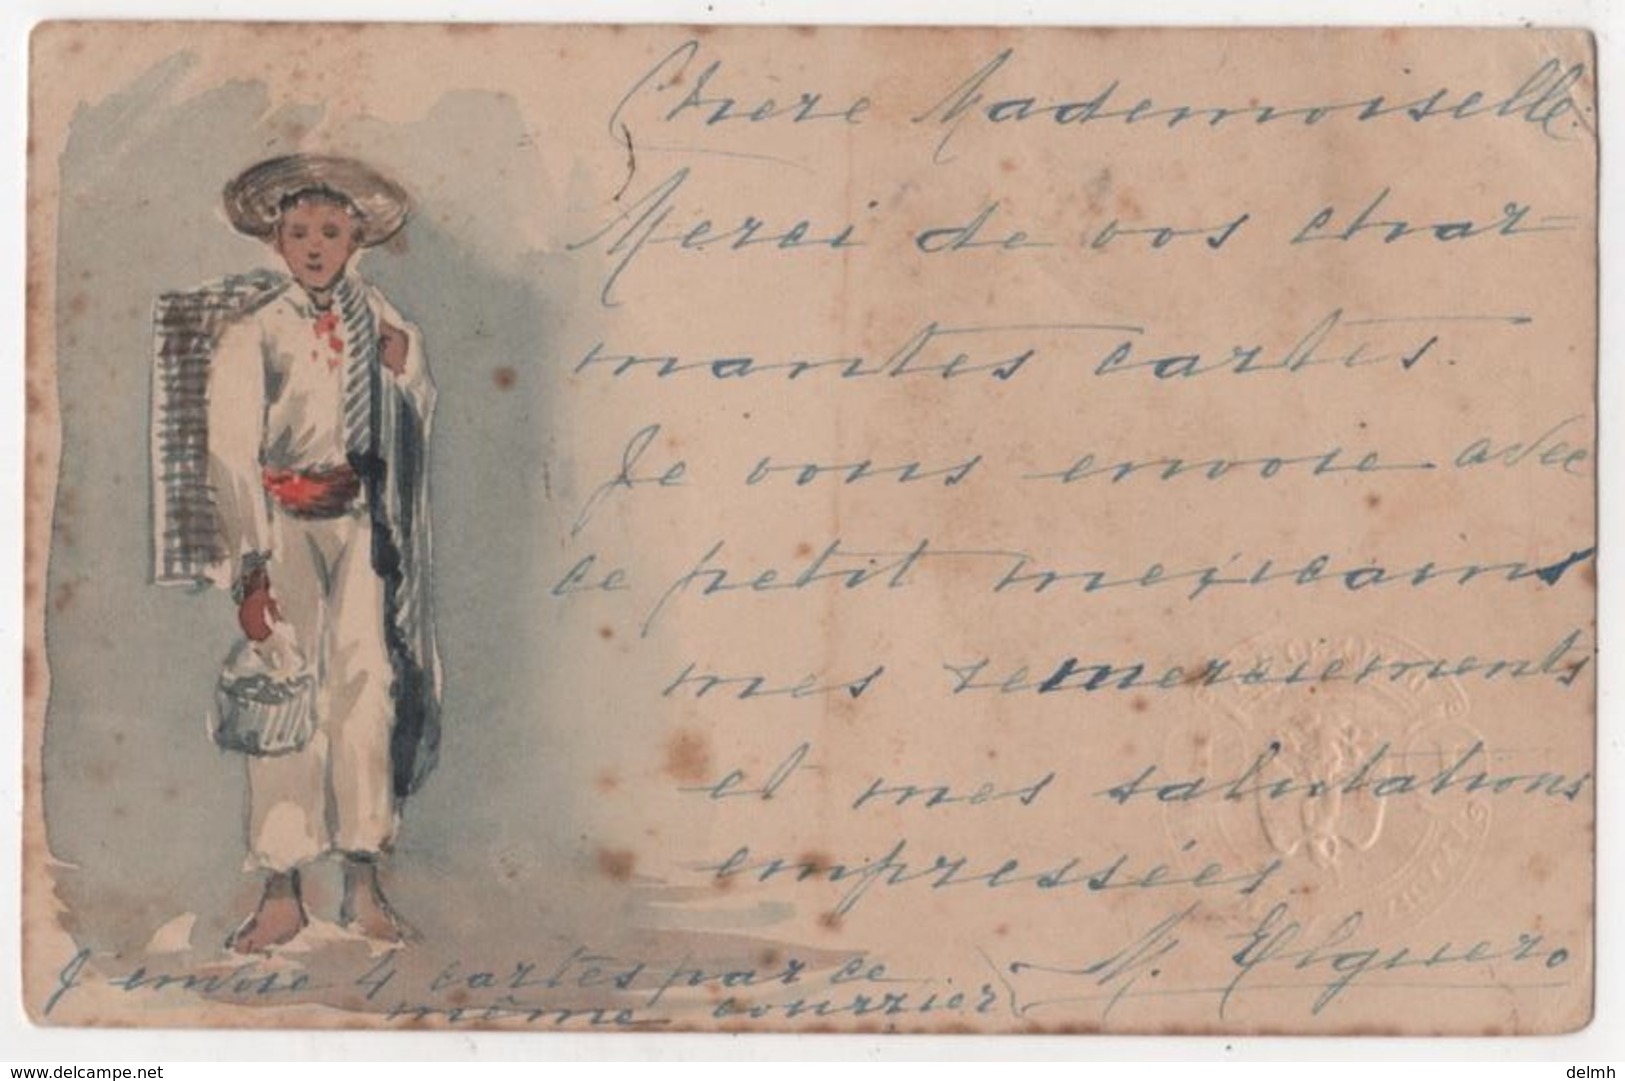 Chere Mademoiselle.
Merci de vos char=
mantes cartes.
Je vous envoie avec
ce petit mexicains
mes remerciements
et mes salutations
empressées.
M. Elguero
J envoie 4 cartes par ce
même courrier
www.delcampe.net
delmh